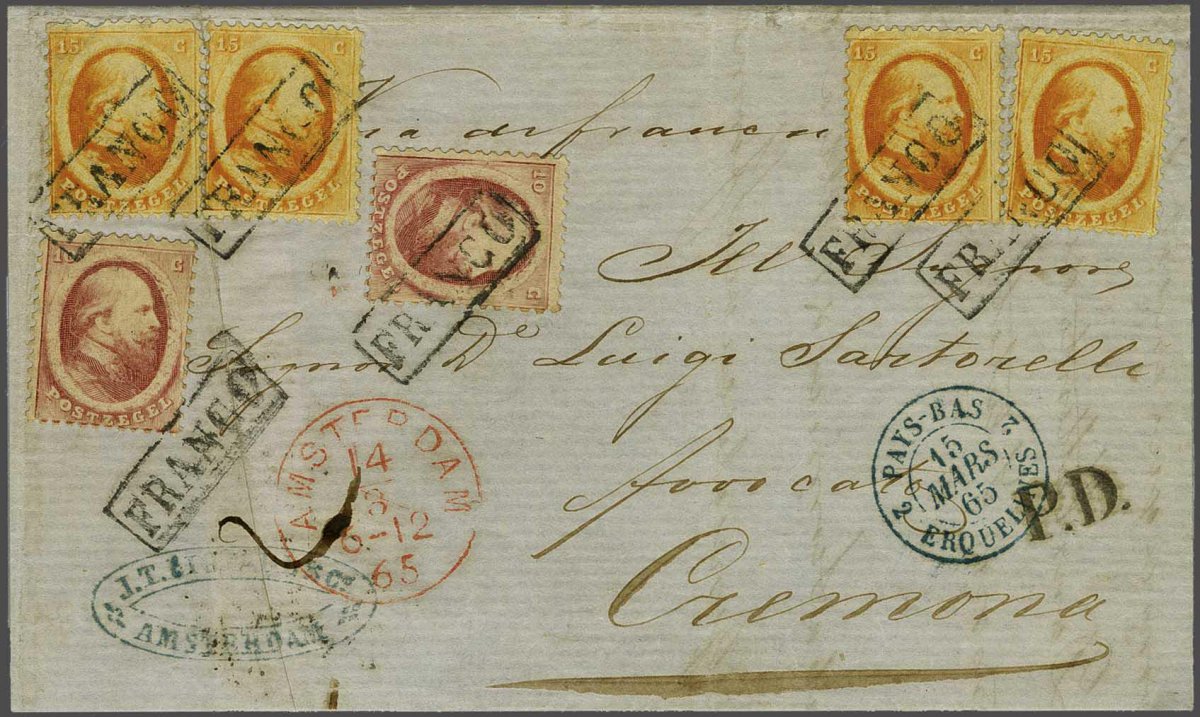 15 C
15 C
15 C
15 C
POSTZEGEL
POSTZEGEL
POSTZEGEL
POSTZEGEL
FRANCO
FRANCO
FRANCO
FRANCO
Via di francia
10 C
POSTZEGEL
FRANCO
Ill Signore
C
POSTZEGEL
FRANCO
Signor De Luigi Sartorelli
Avvocato
Cremona
AMSTERDAM
14
3
6-12
65
2 PAYS-BAS 2
15
MARS
65
ERQUELINES
P.D.
J.T.
AMSTERDAM